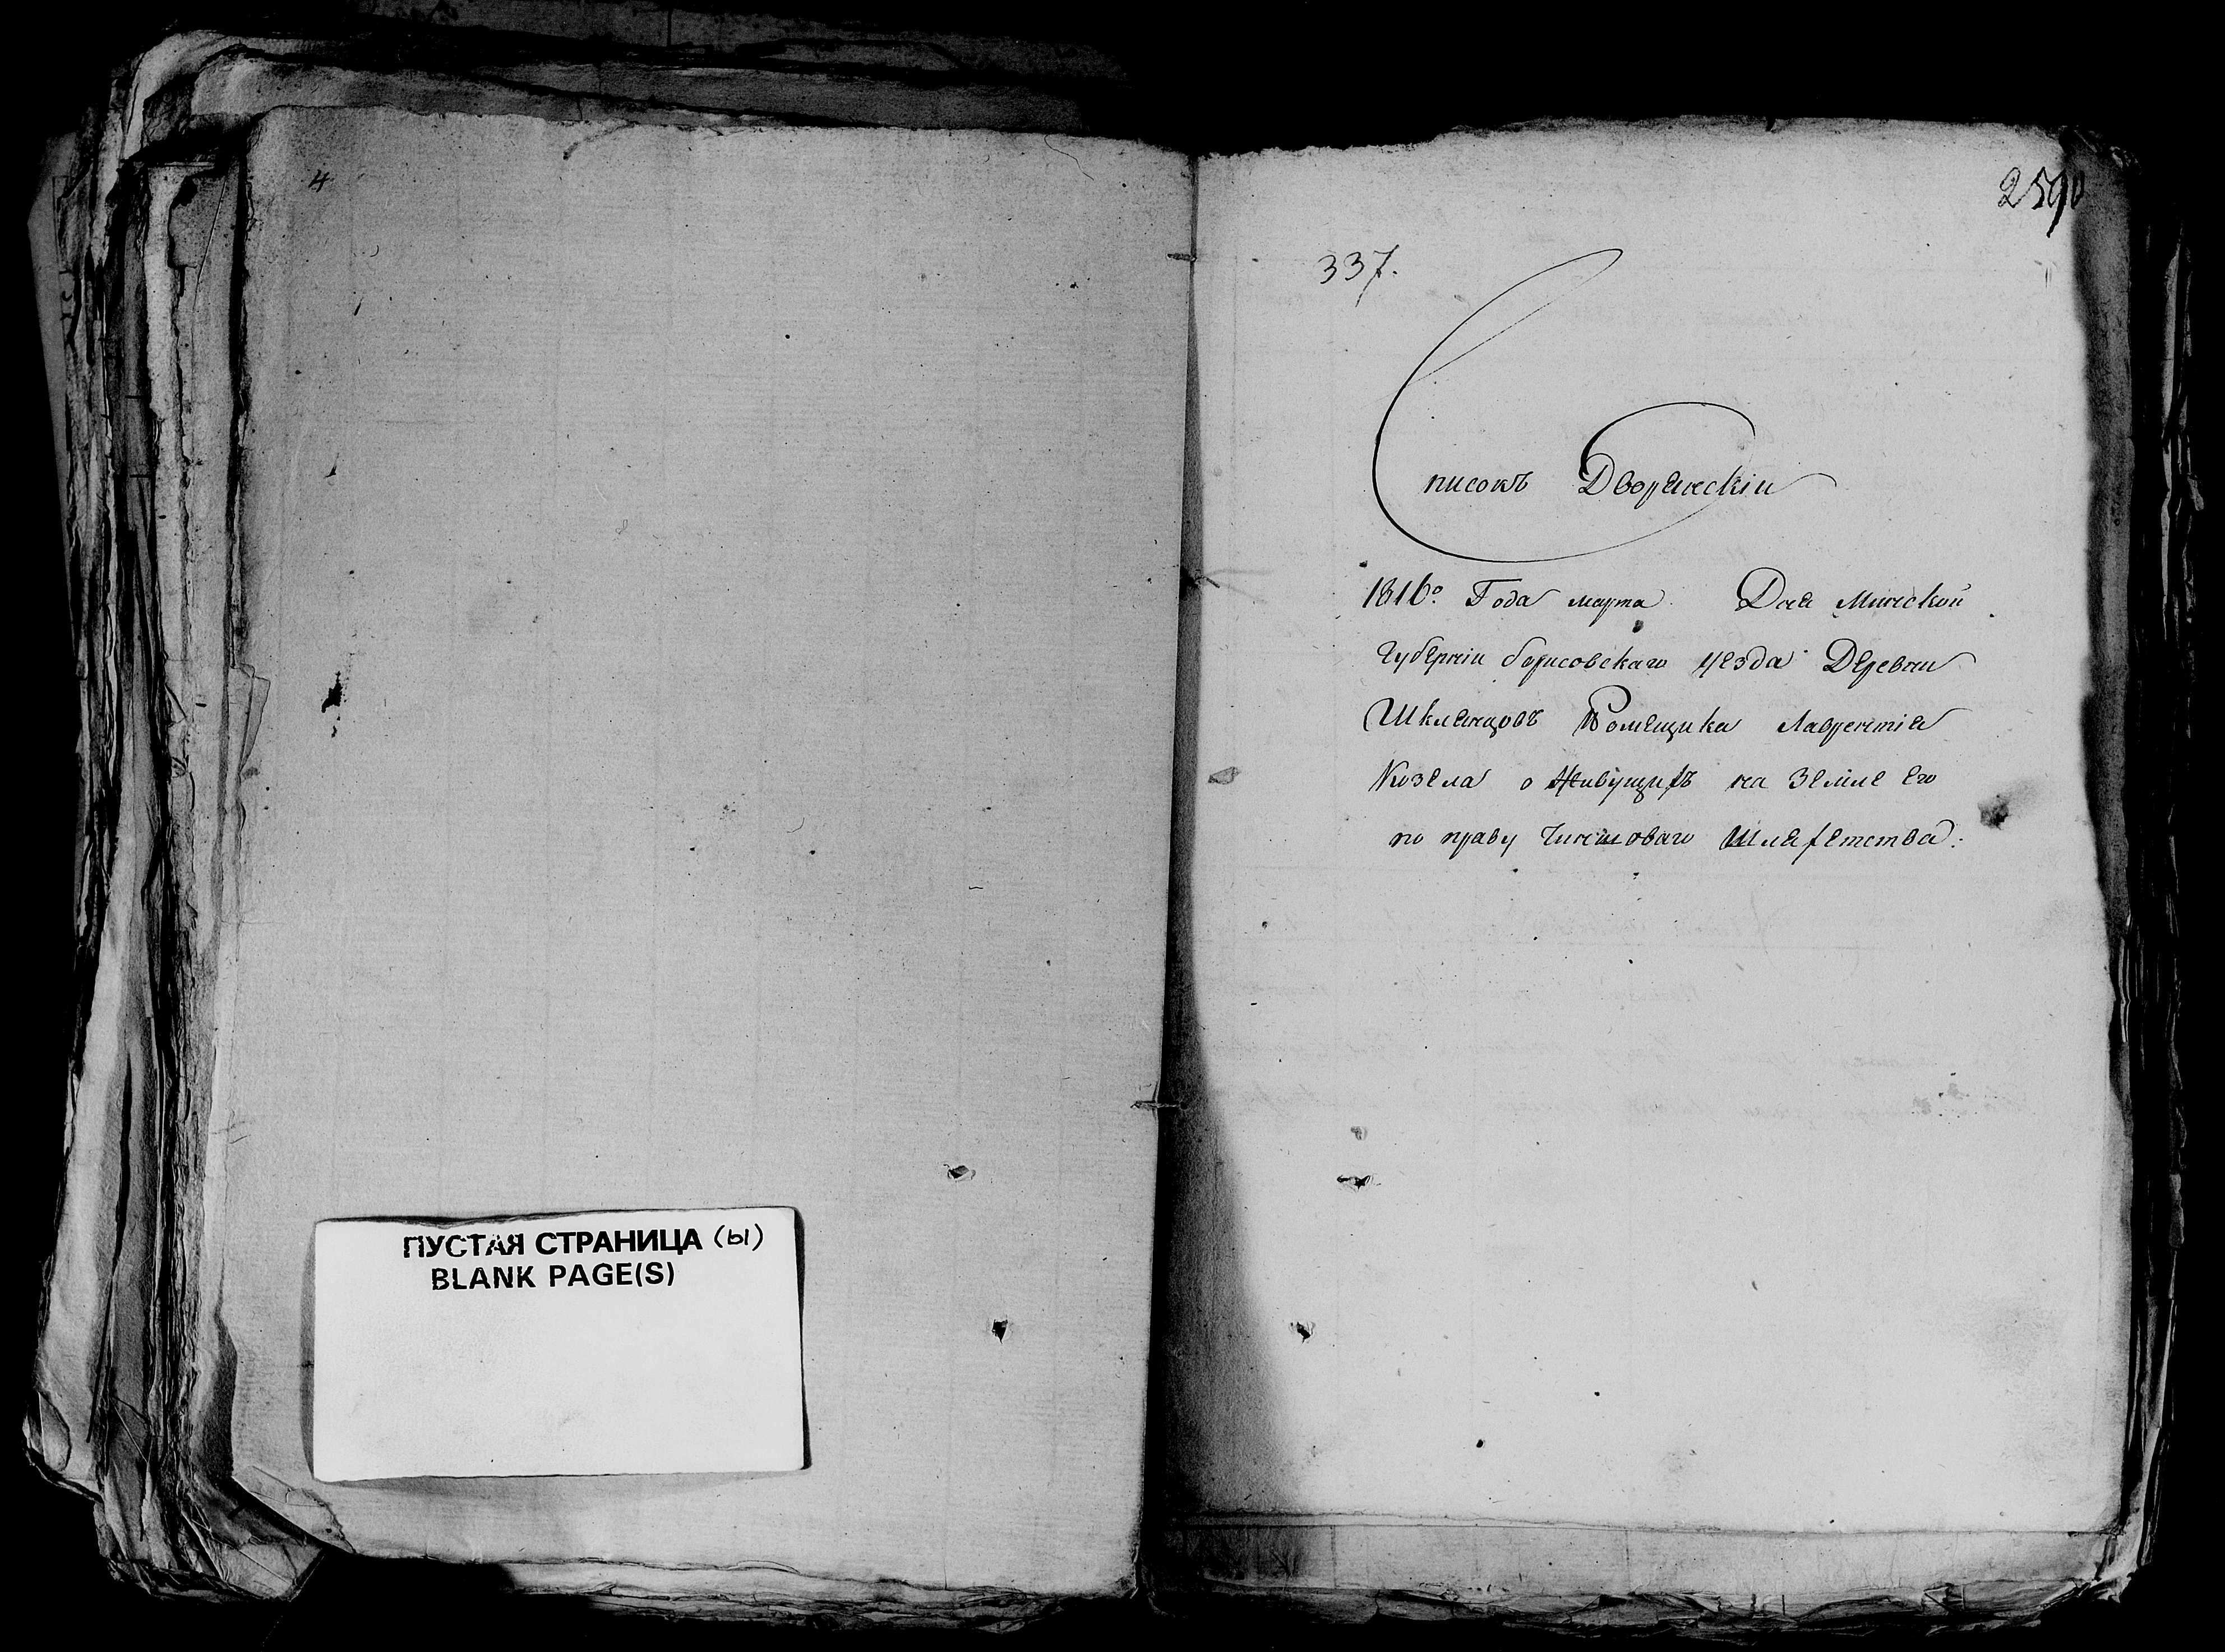 4
ПУСТАЯ СТРАНИЦА (ы)
BLANK PAGE(S)
2590
337.
Списокъ Дворянскіи
1816го Года марта Дня Минской
Губерніи борисовскаго уезда Деревни
Шклянцовъ Помещика Лаврентія
Козела о Живущихъ на Земле Его
по праву Чиншоваго Шляхетства: